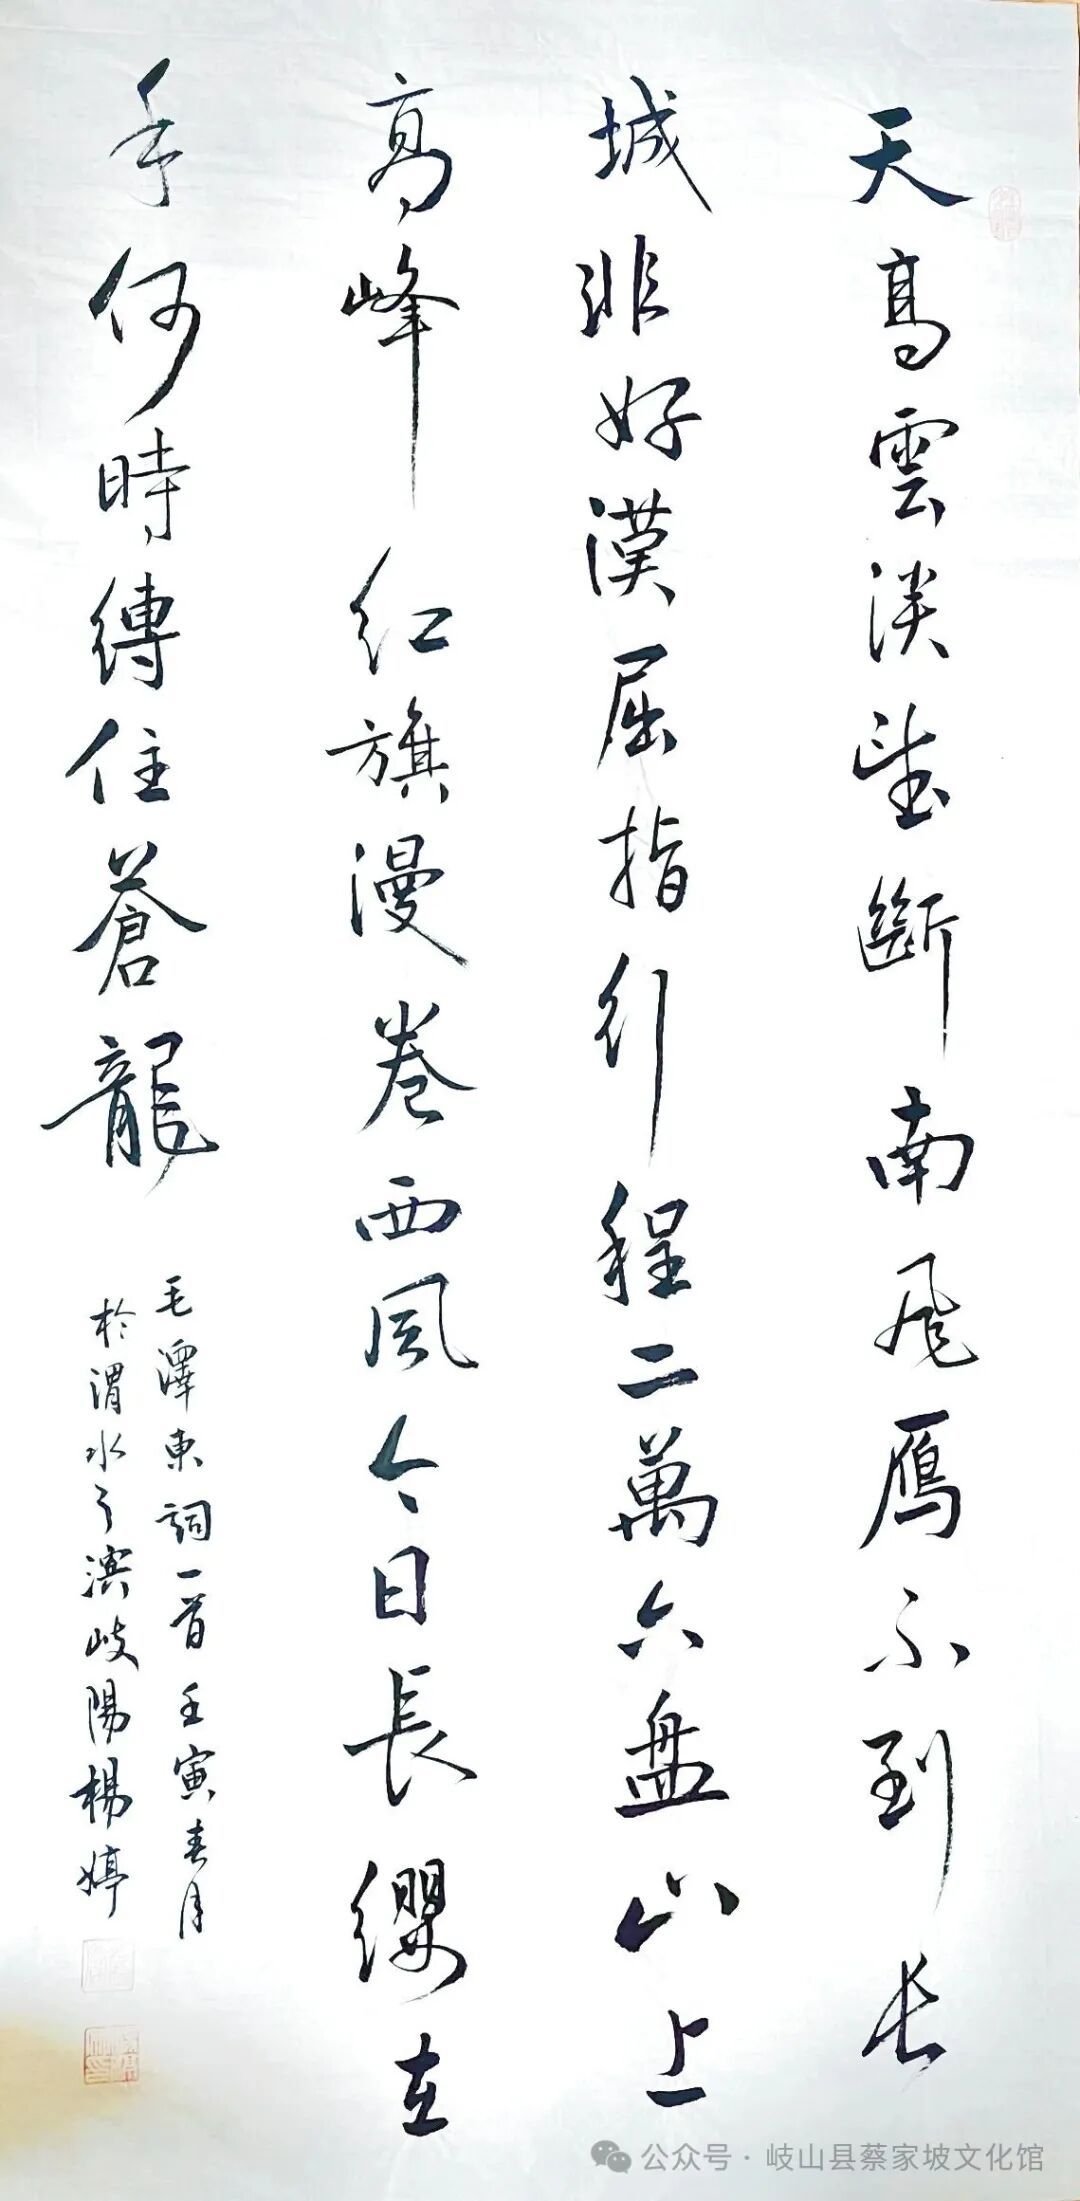 天高雲淡望斷南飛鴈不到长
城非好漢屈指行程二萬六盤山上
高峰红旗漫卷西風今日長纓在
手何時縛住蒼龍
毛澤東詞一首壬寅春月
於渭水之濱岐陽楊婷
公众号 · 岐山县蔡家坡文化馆